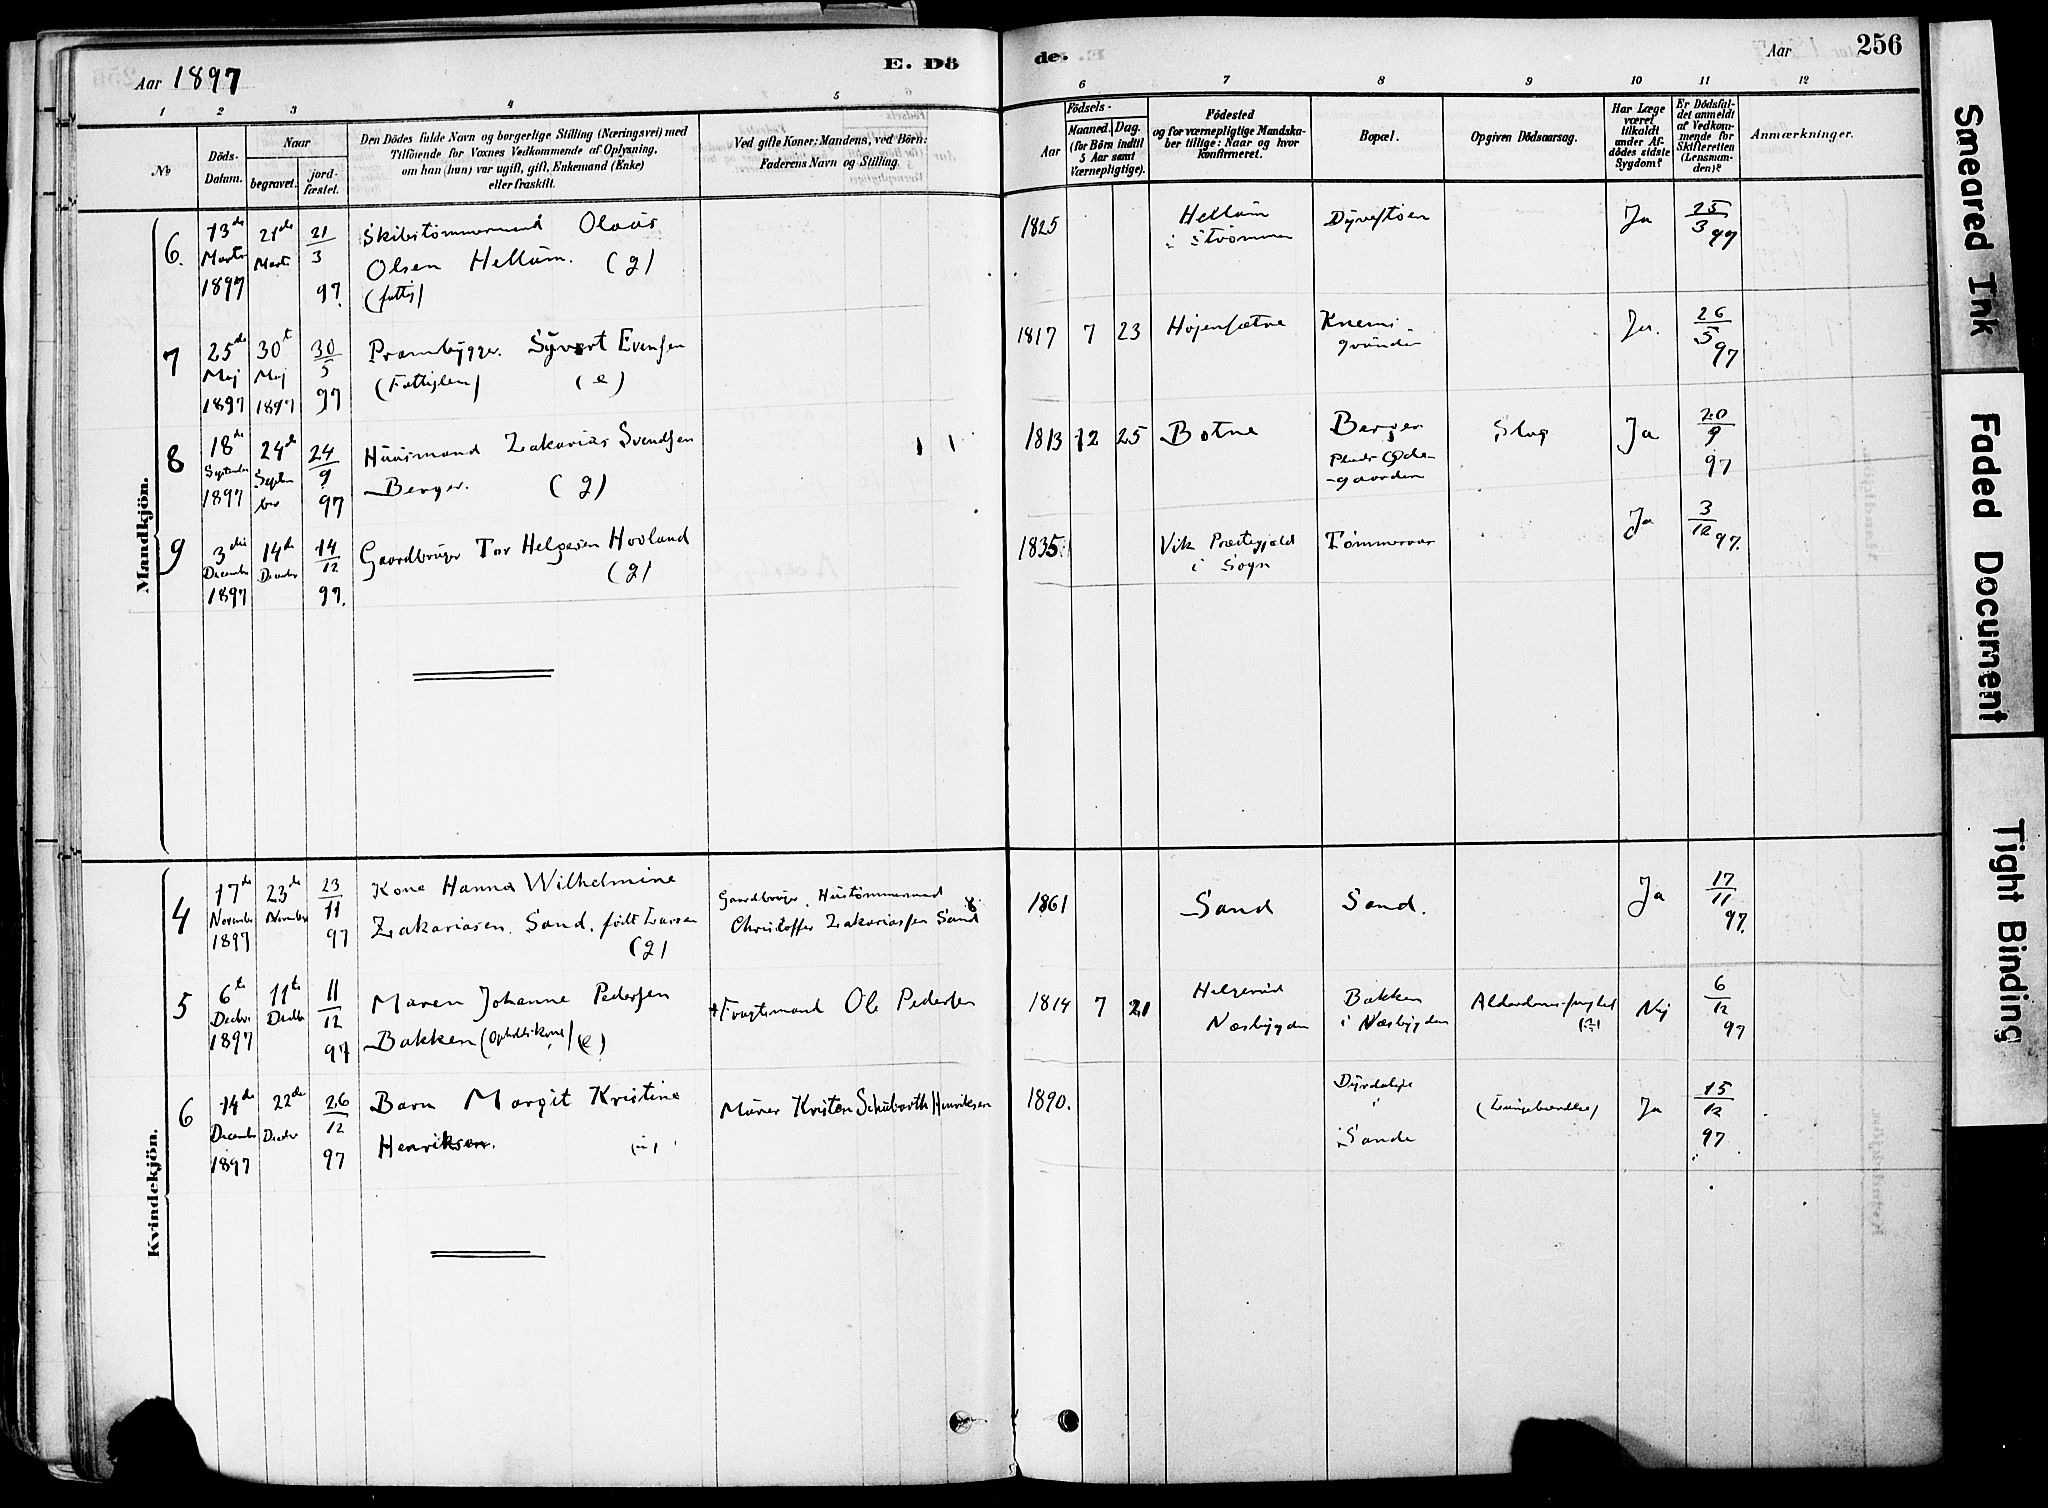 Aar 1897
E. Dö
de.
Aar
256
1 2 3 4 5 6 7 8 9 10 11 12
No
Döds-
Datum.
Naar
begravet.
jord-
fæstet.
Den Dödes fulde Navn og borgerlige Stilling (Næringsvei) med
Tilföiende for Voxnes Vedkommende af Oplysning,
om han (hun) var ugift, gift, Enkemand (Enke)
eller fraskilt.
Ved gifte Koner: Mandens, ved Börn:
Faderens Navn og Stilling.
Födsels-
Aar
Maaned.
Dag.
(for Börn indtil
5 Aar samt
Værnepligtige).
Födested
og for værnepligtige Mandska-
ber tillige: Naar og hvor
konfirmeret.
Bopæl.
Opgiven Dödsaarsag.
Har Læge
været
tilkaldt
under Af-
dödes sidste
Sygdom?
Er Dödsfal-
det anmeldt
af Vedkom-
mende for
Skifteretten
(Lensman-
den)?
Anmærkninger.
Mandkjön.
6. 13de Marts 1897
21de Marts
21/3 97.
Skibstømmermand Olaus
Olsen Hellum. (g)
(fattig)
1825
Hellum
i Strømmen
Ja
25/3 97
7 25de Maj 1897
30t Maj 1897
30/5 97
Prambygger. Syvert Evensen
(Fattiglem) (e)
1817 7 23
Knem-
grønden
Ja.
26/5 97
8 18de September 1897
24de September
24/9 97
Huusmand Zakarias Svendsen
Berger. (g)
1813 12 25
Botne
Berger
Slag
Ja
20/9 97
9 3die December 1897
14de December
14/12 97.
Gaardbruger Tor Helgesen Hovland
(g)
1835
Vik Præstegjeld
i Sogn
Tømmeraas
Ja
3/12 97.
Kvindekjön.
4 17de November 1897
23de November
23/11 97
Kone Hanna Wilhelmine
Zakariasen Sand, født Larsen
(g)
Gaardbruger. Hustømmermand
Christoffer Zakariassen Sand
1861
Sand
Sand.
Ja
17/11 97.
5 6te Decbr 1897
11te Decbr
11/12 97
Maren Johanne Pedersen
Bakken (e)
Fragtemand Ole Pedersen
1814 7 21
Helgerud
Næsbygden
Bakken
i Næsbygden
Nej
6/12 97
6 14de December 1897
22de Decbr
26/12 97
Barn Margit Kristine
Henriksen.
Murer Kristen Schubarth Henriksen
1890.
i
Sande
(Lungebetændelse)
Ja
15/12 97
Smeared Ink
Faded Document
Tight Binding